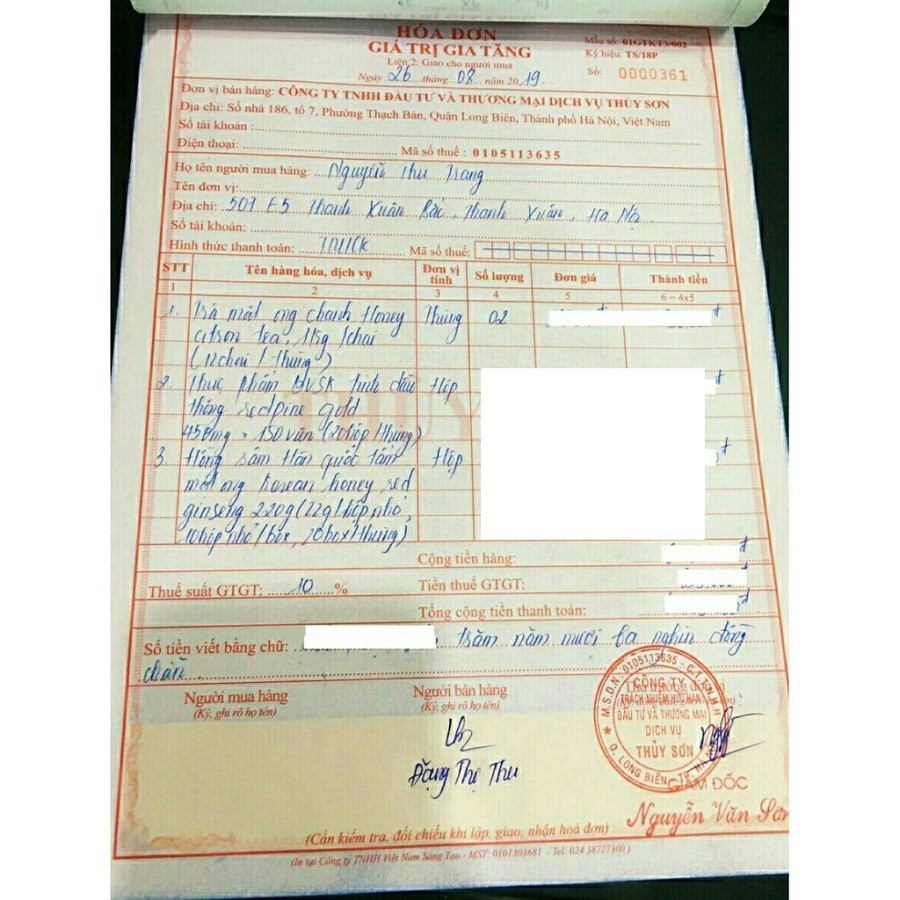 HÓA ĐƠN
GIÁ TRỊ GIA TĂNG
Liên 2: Giao cho người mua
Ngày 26 tháng 08 năm 2019.
Mẫu số: 01GTKT3/002
Ký hiệu: TS/18P
Số: 0000361
Đơn vị bán hàng: CÔNG TY TNHH ĐẦU TƯ VÀ THƯƠNG MẠI DỊCH VỤ THỦY SƠN
Địa chỉ: Số nhà 186, tổ 7, Phường Thạch Bàn, Quận Long Biên, Thành phố Hà Nội, Việt Nam
Số tài khoản:
Điện thoại: Mã số thuế: 0105113635
Họ tên người mua hàng: Nguyễn Thu Trang
Tên đơn vị:
Địa chỉ: 507 E5 Thanh Xuân Bắc, Thanh Xuân, Hà Nội
Số tài khoản:
Hình thức thanh toán: TM/CK Mã số thuế:
STT Tên hàng hóa, dịch vụ Đơn vị tính Số lượng Đơn giá Thành tiền
1 2 3 4 5 6 = 4x5
1. Trà mật ong chanh Honey Thùng 02
citron tea, 1kg/chai
(12chai/thùng)
2. Thực phẩm BVSK tinh dầu Hộp
thông redpine gold
450mg × 150 viên (20hộp/thùng)
3. Hồng sâm Hàn quốc tẩm Hộp
mật ong Korean honey red
ginseng 220g (22g/hộp nhỏ,
10hộp nhỏ/box, 20box/thùng)
Cộng tiền hàng: đ
Thuế suất GTGT: 10 % Tiền thuế GTGT:
Tổng cộng tiền thanh toán: đ
Số tiền viết bằng chữ: trăm năm mươi ba nghìn đồng
chẵn
Người mua hàng Người bán hàng
(Ký, ghi rõ họ tên) (Ký, ghi rõ họ tên)
M.S.D.N: 0105113635 - C.T.T.N.H.H
CÔNG TY
TRÁCH NHIỆM HỮU HẠN
ĐẦU TƯ VÀ THƯƠNG MẠI
DỊCH VỤ
THỦY SƠN
Q. LONG BIÊN - TP. HÀ NỘI
Đặng Thị Thu
GIÁM ĐỐC
Nguyễn Văn Sơn
(Cần kiểm tra, đối chiếu khi lập, giao, nhận hoá đơn)
(In tại Công ty TNHH Việt Nam Sáng Tạo - MST: 0101303681 - Tel: 024 38727300)